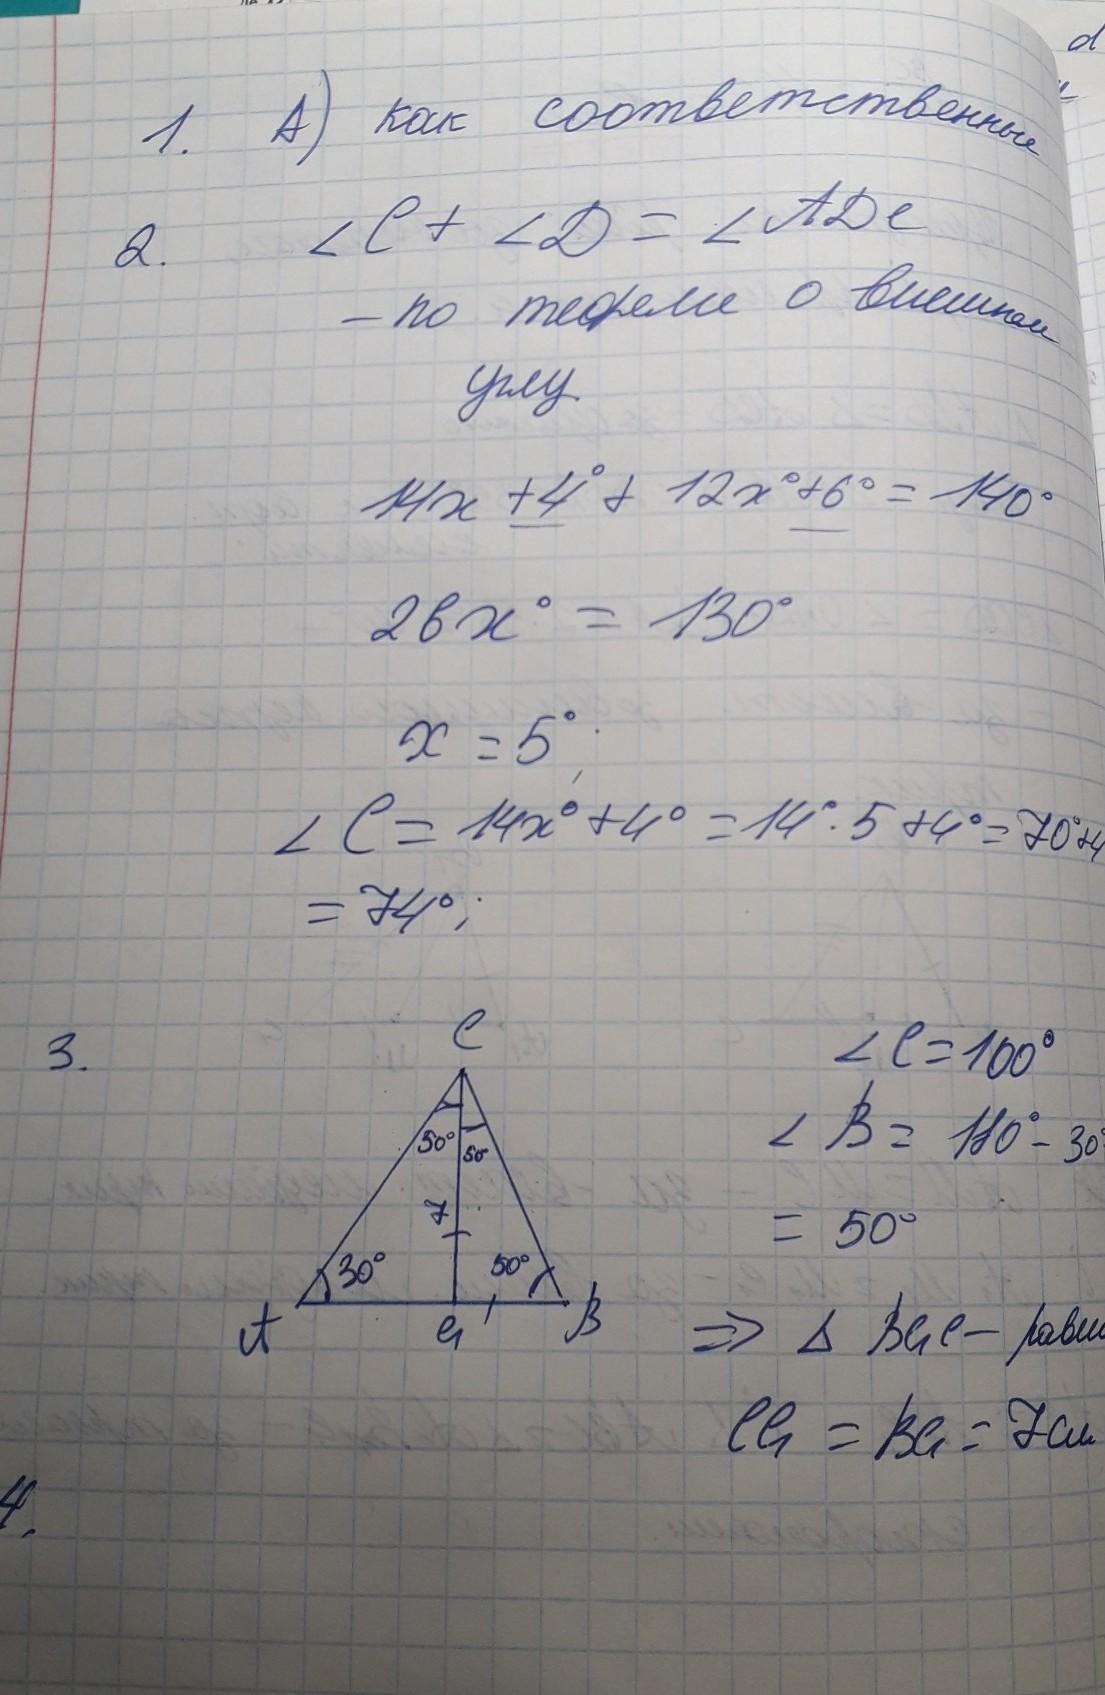 1. А) как соответственные
2. ∠C + ∠D = ∠ADC
– по теореме о внешнем
углу
14x + 4° + 12x° + 6° = 140°
26x° = 130°
x = 5°;
∠C = 14x° + 4° = 14°·5 + 4° = 70° + 4
= 74°;
3.
C
50° 50°
7
30° 50°
A C₁ B
∠C = 100°
∠B = 180° – 30°
= 50°
⇒ Δ BC₁C – равн
CC₁ = BC₁ = 7 см
4.